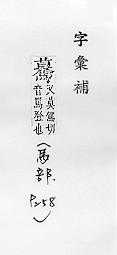 字彙補
驀 又莫駕切
音馬登也
(馬部.
P258)